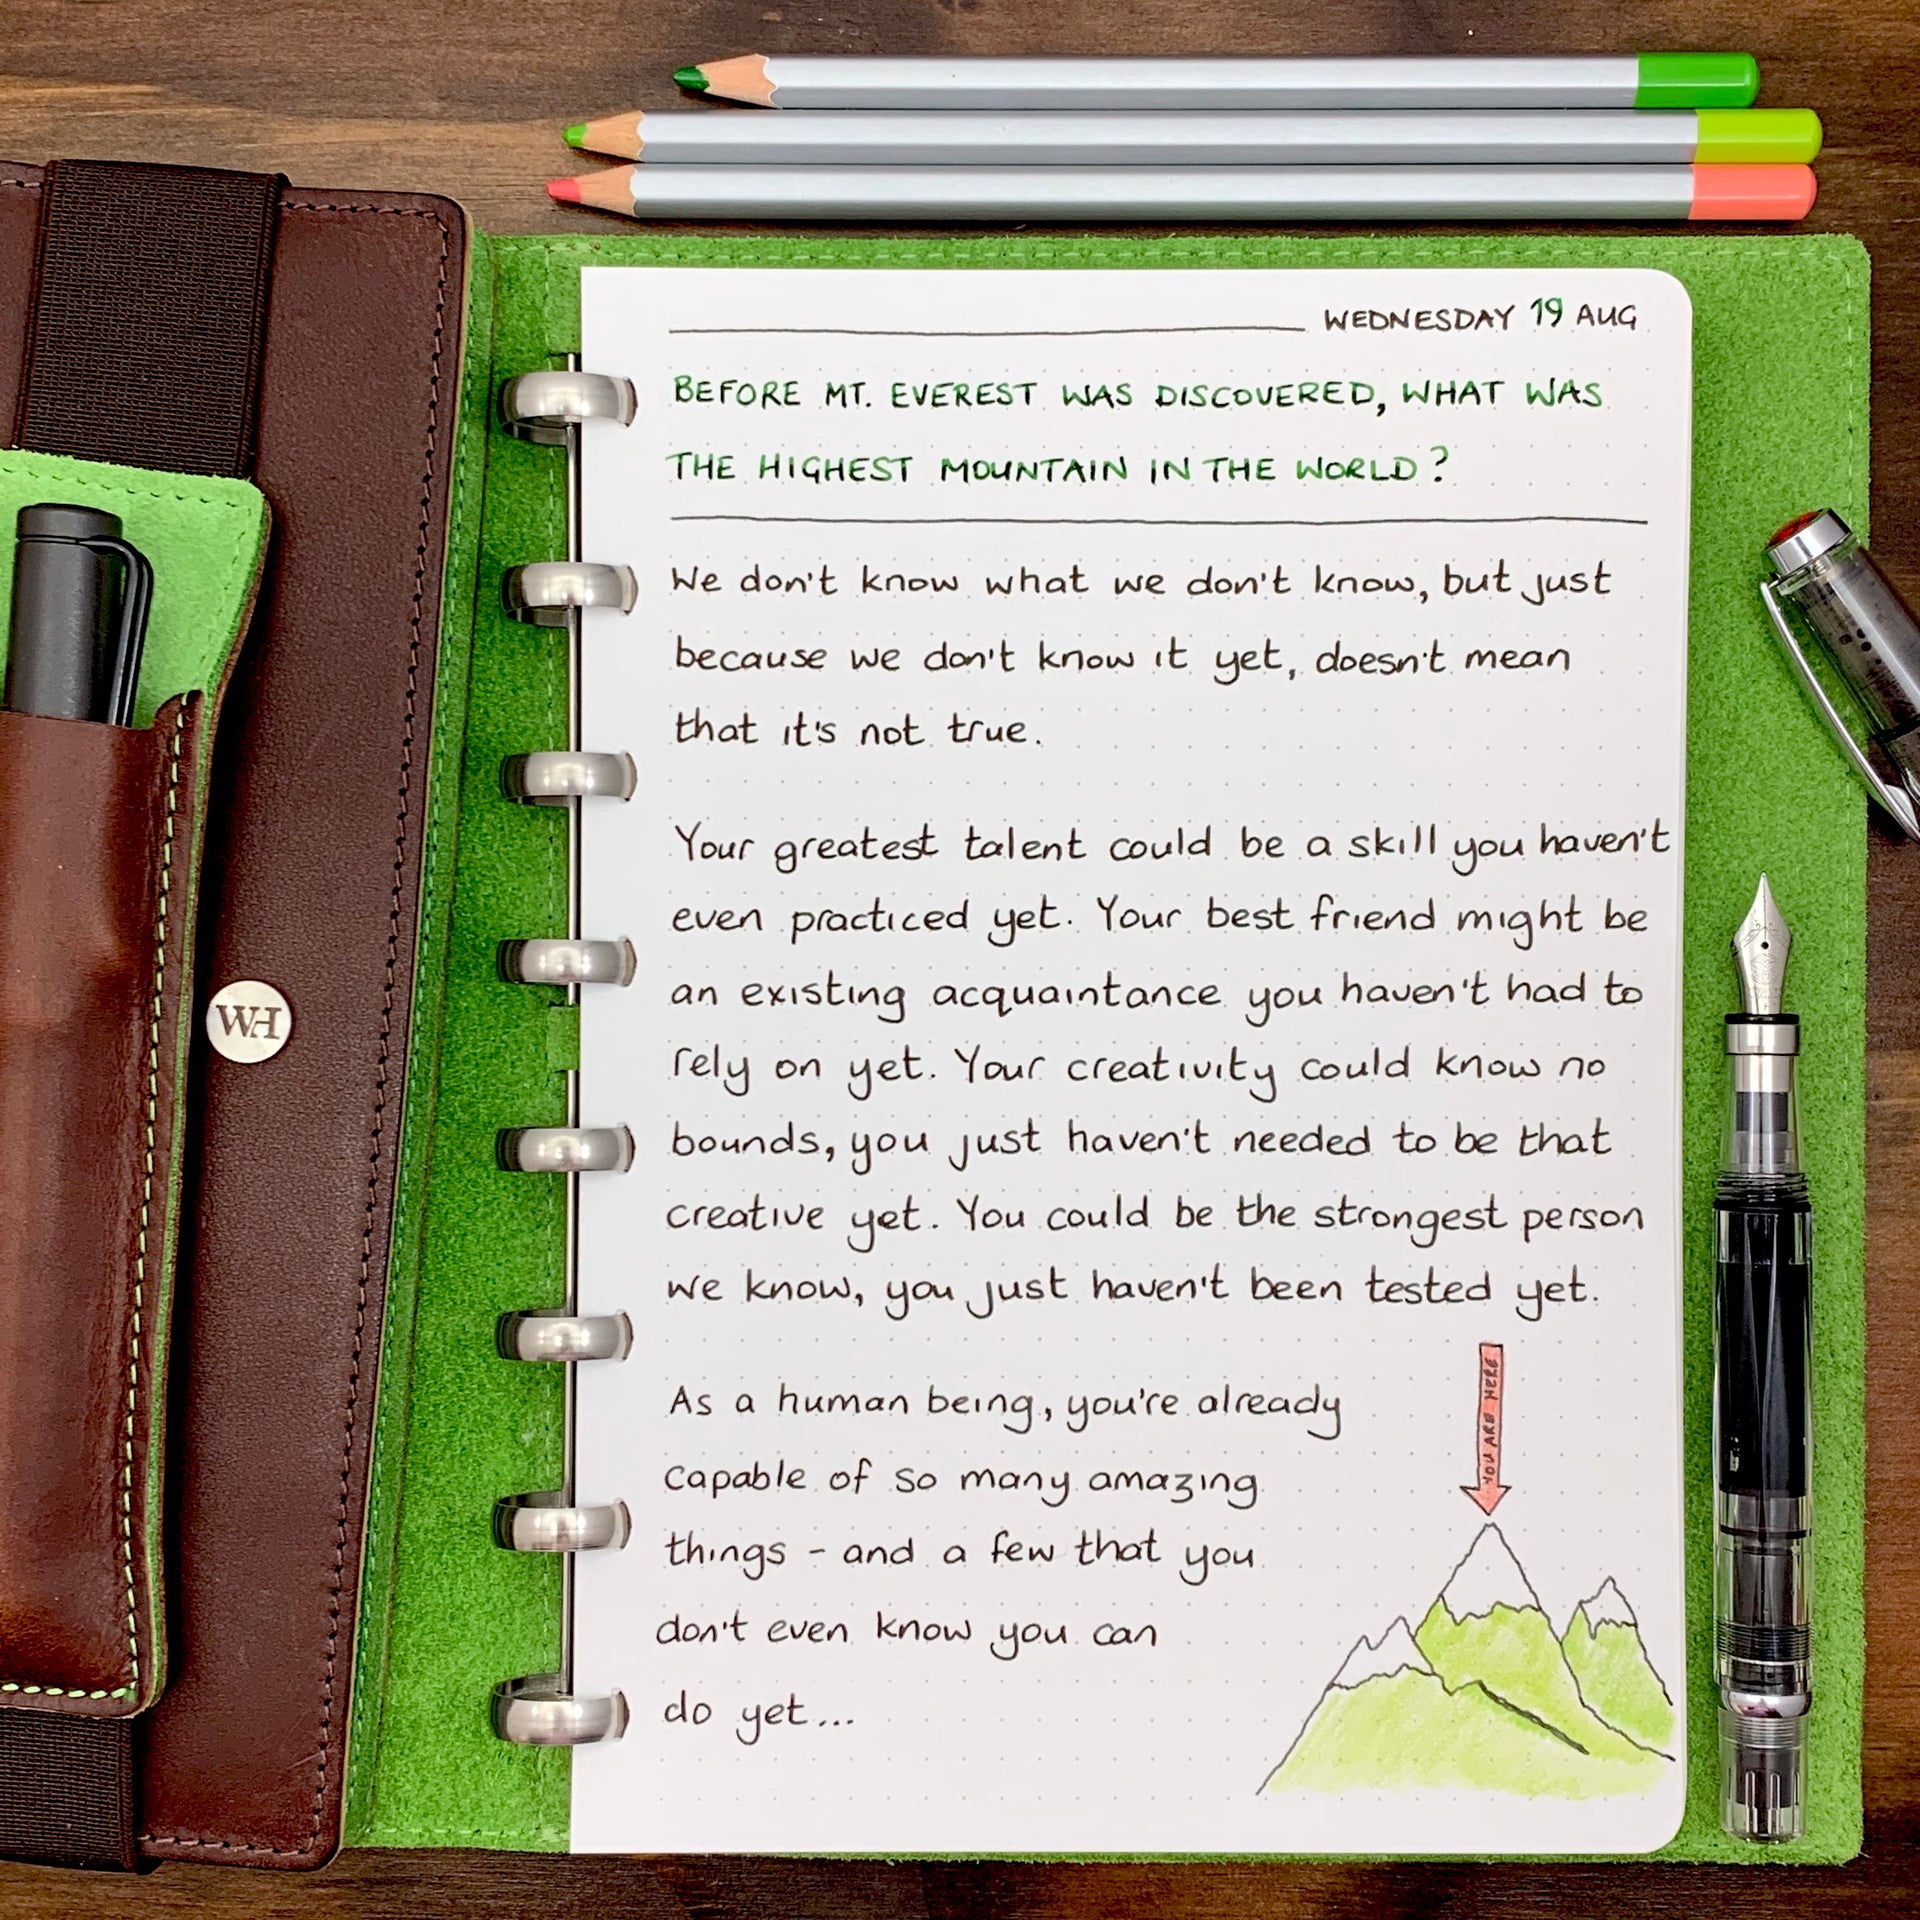 WEDNESDAY 19 AUG
BEFORE MT. EVEREST WAS DISCOVERED, WHAT WAS
THE HIGHEST MOUNTAIN IN THE WORLD?
We don't know what we don't know, but just
because we don't know it yet, doesn't mean
that it's not true.
Your greatest talent could be a skill you haven't
even practiced yet. Your best friend might be
an existing acquaintance you haven't had to
rely on yet. Your creativity could know no
bounds, you just haven't needed to be that
creative yet. You could be the strongest person
we know, you just haven't been tested yet.
As a human being, you're already
capable of so many amazing
things - and a few that you
don't even know you can
do yet...
YOU ARE HERE
WH